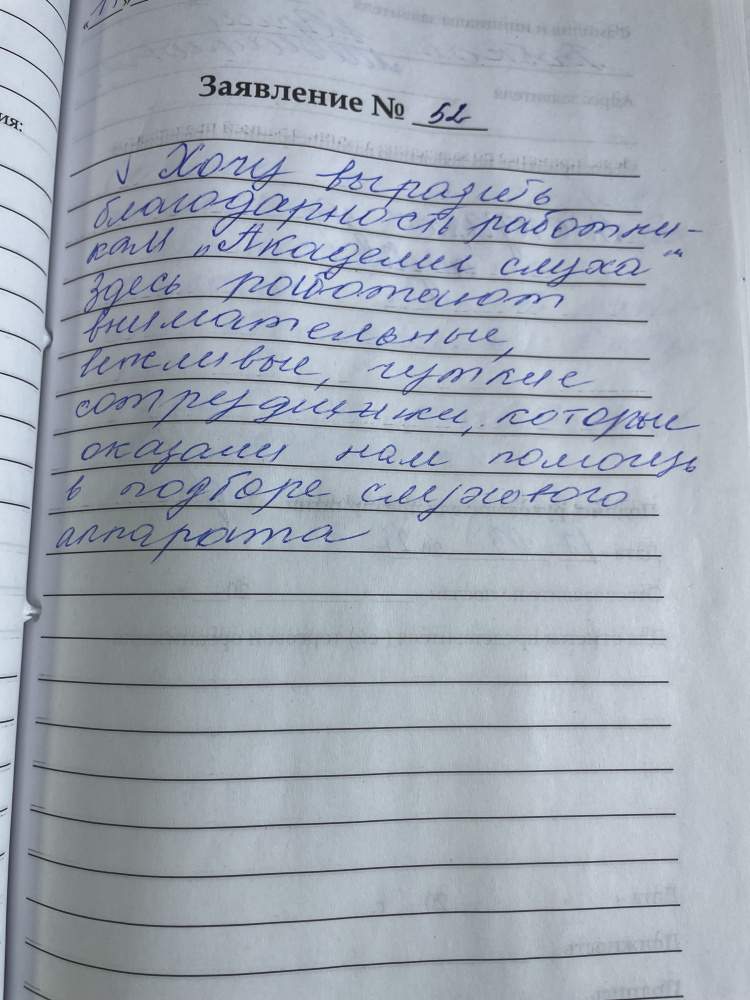 ия:
Заявление № 52
Хочу выразить
благодарность работни-
кам „Академии слуха"
Здесь работают
внимательные,
вежливые, чуткие
сотрудники, которые
оказали нам помощь
в подборе слухового
аппарата